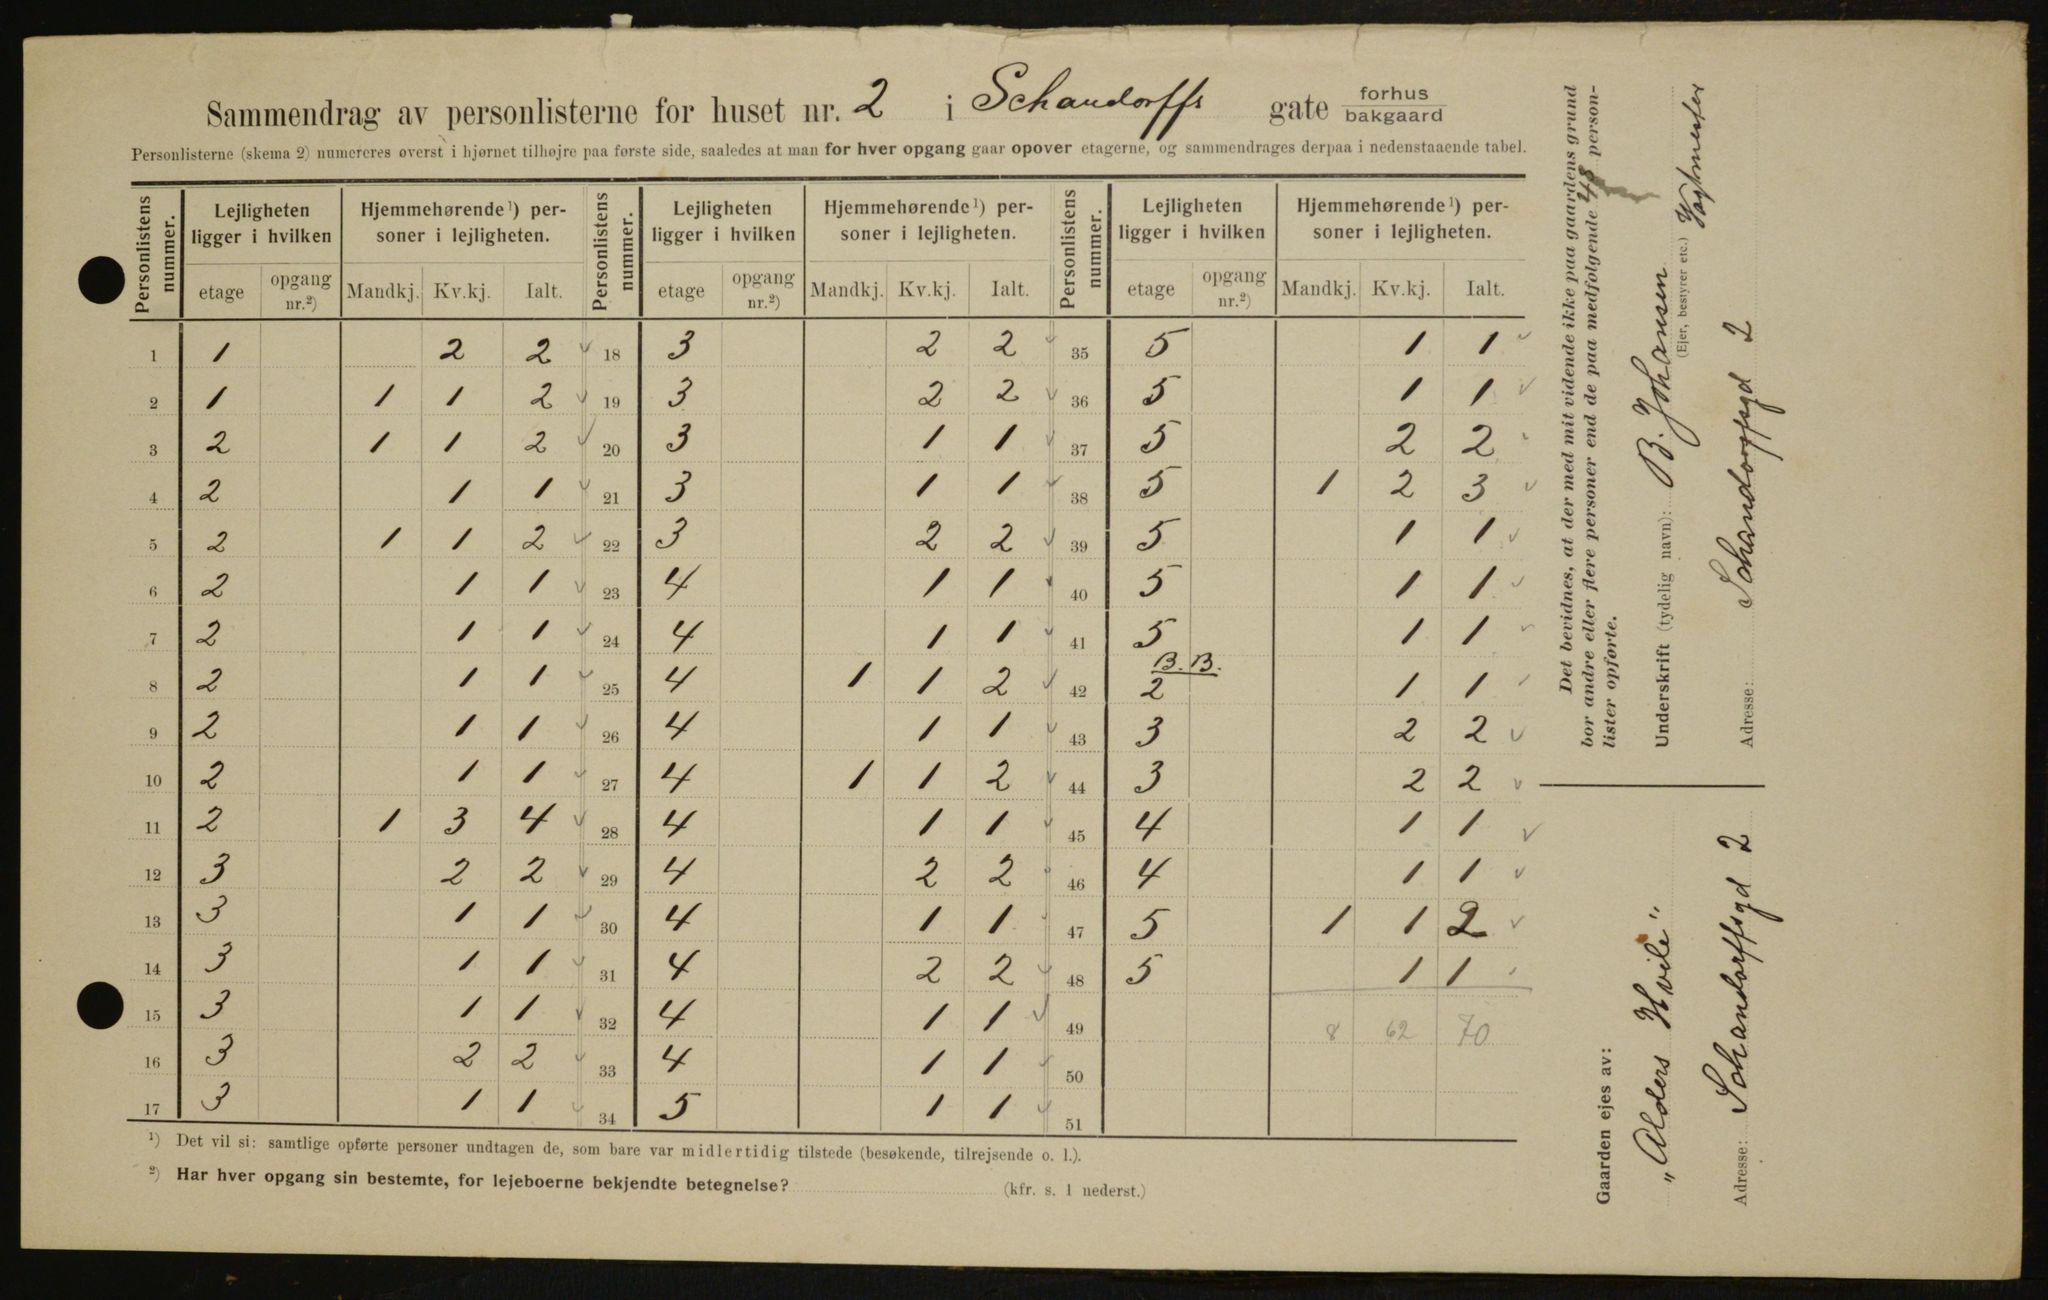 Sammendrag av personlisterne for huset nr. 2 i Schandorffs gate forhus bakgaard
Personlisterne (skema 2) numereres øverst i hjørnet tilhøjre paa første side, saaledes at man for hver opgang gaar opover etagerne, og sammendrages derpaa i nedenstaaende tabel.
Personlistens nummer. Lejligheten ligger i hvilken Hjemmehørende ¹) personer i lejligheten. Personlistens nummer. Lejligheten ligger i hvilken Hjemmehørende ¹) personer i lejligheten. Personlistens nummer. Lejligheten ligger i hvilken Hjemmehørende ¹) personer i lejligheten.
etage opgang nr.²) Mandkj. Kv.kj. Ialt. etage opgang nr.²) Mandkj. Kv.kj. Ialt. etage opgang nr.²) Mandkj. Kv.kj. Ialt.
1 1 2 2 18 3 2 2 35 5 1 1
2 1 1 1 2 19 3 2 2 36 5 1 1
3 2 1 1 2 20 3 1 1 37 5 2 2
4 2 1 1 21 3 1 1 38 5 1 2 3
5 2 1 1 2 22 3 2 2 39 5 1 1
6 2 1 1 23 4 1 1 40 5 1 1
7 2 1 1 24 4 1 1 41 5 1 1
B. B.
8 2 1 1 25 4 1 1 2 42 2 1 1
9 2 1 1 26 4 1 1 43 3 2 2
10 2 1 1 27 4 1 1 2 44 3 2 2
11 2 1 3 4 28 4 1 1 45 4 1 1
12 3 2 2 29 4 2 2 46 4 1 1
13 3 1 1 30 4 1 1 47 5 1 1 2
14 3 1 1 31 4 2 2 48 5 1 1
15 3 1 1 32 4 1 1 49 8 62 70
16 3 2 2 33 4 1 1 50
17 3 1 1 34 5 1 1 51
¹) Det vil si: samtlige opførte personer undtagen de, som bare var midlertidig tilstede (besøkende, tilrejsende o. l.).
²) Har hver opgang sin bestemte, for lejeboerne bekjendte betegnelse? (kfr. s. 1 nederst.)
Det bevidnes, at der med mit vidende ikke paa gaardens grund
bor andre eller flere personer end de paa medfølgende 48 person-
lister opførte.
Underskrift (tydelig navn): B. Johansen Vaktmester
(Ejer, bestyrer etc.)
Adresse: Schandorffsgd 2
Gaarden ejes av:
„Alders Hvile"
Adresse: Schandorffsgd 2